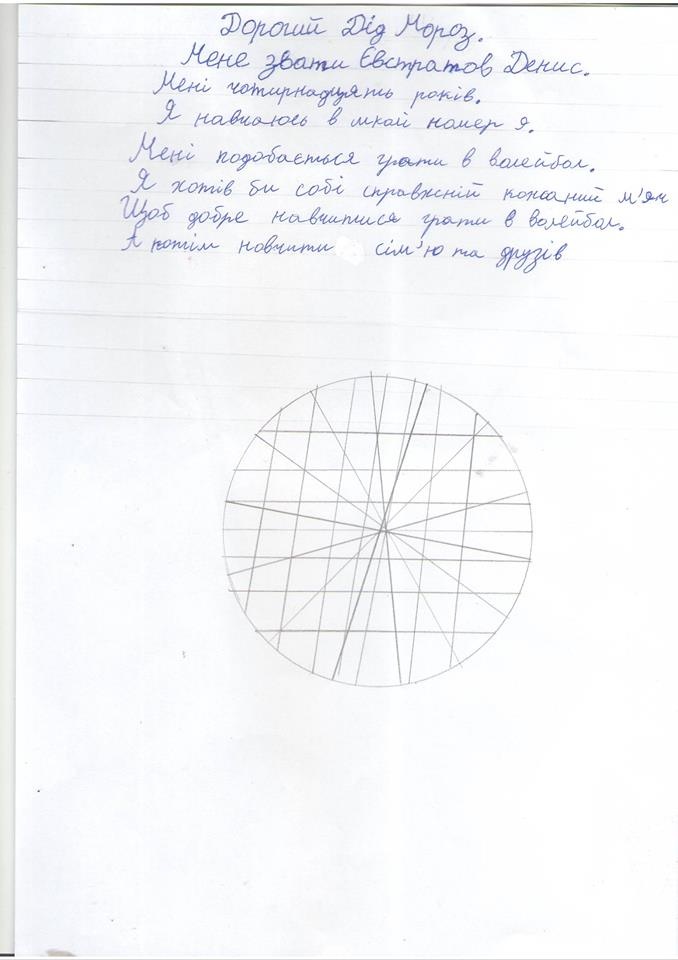 Дорогий Дід Мороз.
Мене звати Євстратов Денис.
Мені чотирнадцять років.
Я навчаюсь в шкой номер Я.
Мені подобається грати в волейбол.
Я хотів би собі справжній кожаний м'яч
Щоб добре навчитися грати в волейбол.
А потім навчити сім'ю та друзів